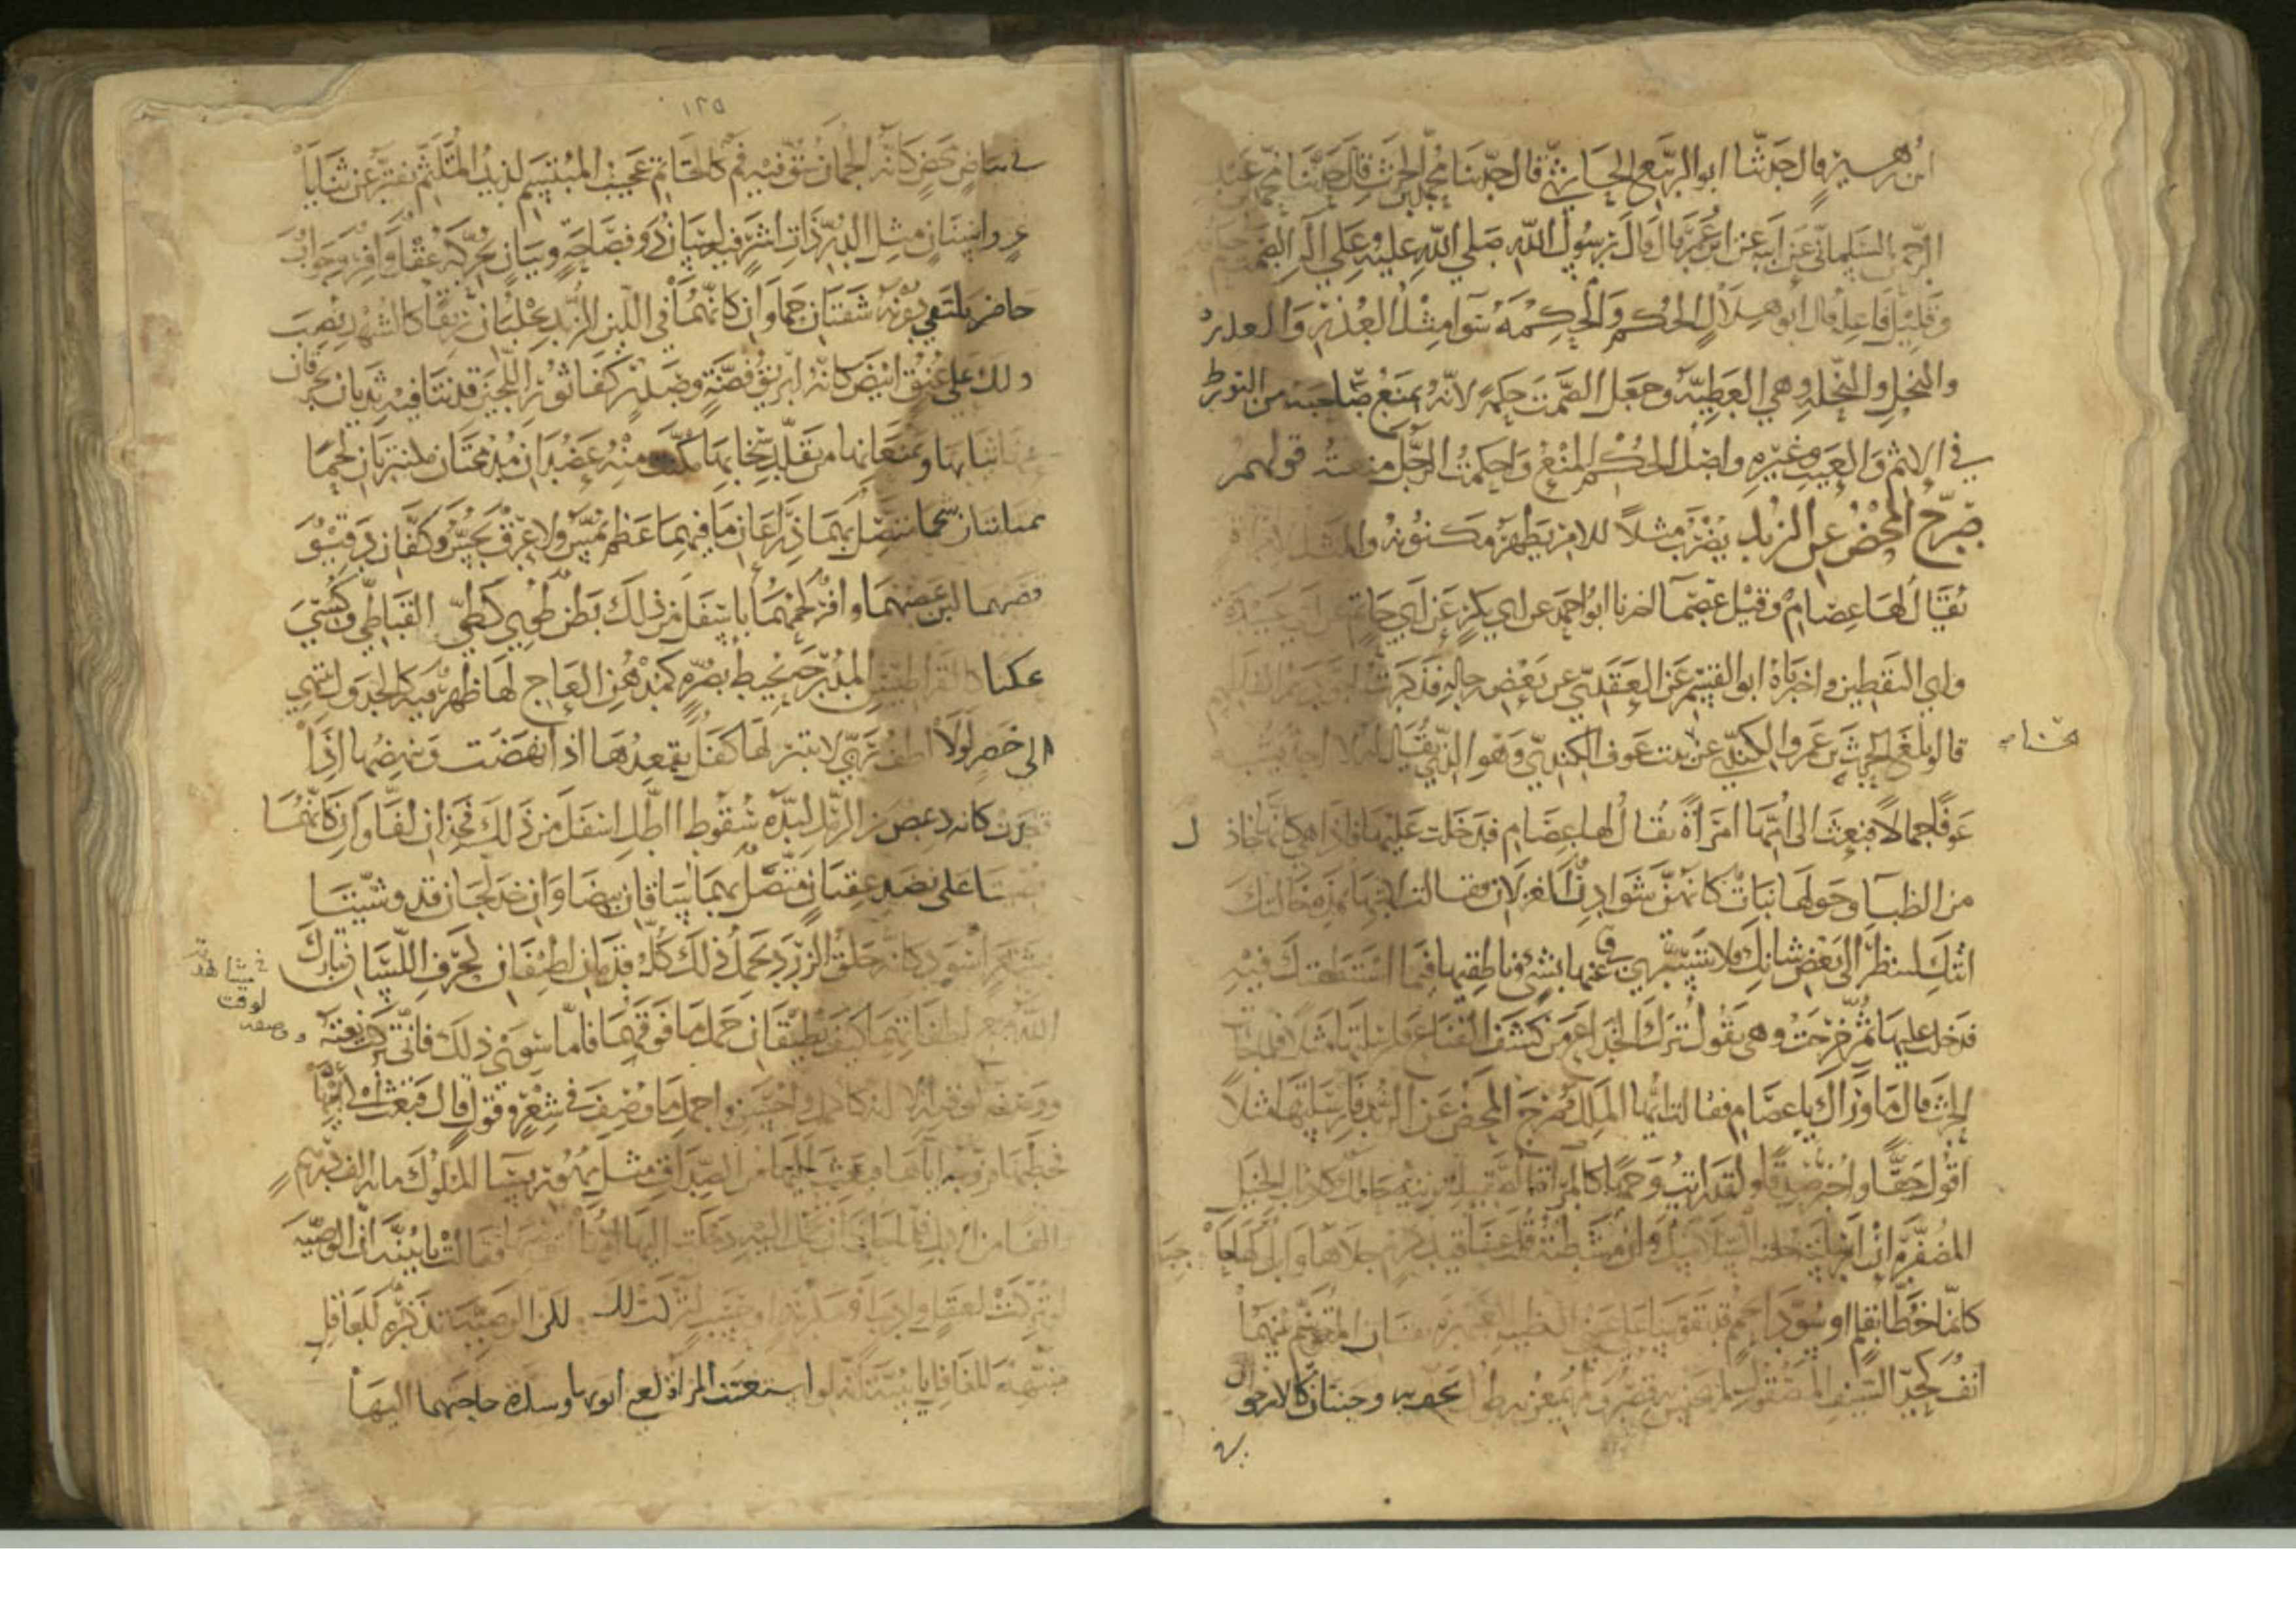 ابن زهير قال حدثنا ابو الربيع الحارثي قال حدثنا محمد بن الحرث قال حدثنا محمد بن عبد
الرحمن السلماني عن ابيه عن ابن عمر قال قال رسول الله صلى الله عليه وعلى آله الصمت
وقليل فاعله قال ابو هلال الحكم والحكمة سوا مثل العذر والعذرة
والنحل والنحلة وهي العطية وجعل الصمت حكمة لانه يمنع صاحبه من التورط
في الاثم والعيب وغيره واصل الحكم المنع واحكمت الرجل منعته قولهم
صرح المحض عن الزبد يضرب مثلا للامر يظهر مكنونه والمثل لامراة
يقال لها عصام وقيل عصما اخبرنا ابو احمد عن ابي بكر عن ابي حاتم عن ابي عبيدة
وابي اليقظين واخبرناه ابو القسم عن العقدي عن بعض رجاله فذكرت
قالوا بلغ الحرث بن عمرو الكندي عن بنت عوف الكندي وهو الذي يقال له لا احد يشبه
عوفا جمالا فبعث الى امها امراة يقال لها عصام فدخلت عليها فاذا هي كانها خاذل
من الظبا وحولها بنات كانهن شوادن الغزلان فقالت لابنتها هذه خالتك
اتتك لتنظر الى بعض شانك فلا تستتري عنها بشي وناطقيها فيما استنطقتك فيه
فدخلت عليها ثم خرجت وهي تقول ترك الخداع من كشف القناع فارسلتها مثلا فلما جات
الحرث قال ما وراك يا عصام فقالت ايها الملك صرح المحض عن الزبد فارسلتها مثلا
اقول حقا واخبر صدقا ولقد رايت وجها كالمراة الصقيلة يزينه حالك كاذناب الخيل
المضفرة ان ارسلته خلته السلاسل وان مشطته قلت عناقيد كرم جلاها وابل لها حاجبا
كانما خطا بقلم او سودا بحمم قد تقوسا على عين الظبية العبهرة بينهما
انف كحد السيف المصقول لم يخنس به قصر ولم يمعن به طول حفت به وجنتان كالارجوان
في بياض محض كانه الجمان شق فيه فم كالخاتم عجيب المبتسم لذيذ الملتثم يفتر عن ثنايا
غر واسنان مثل الدر ذات اشر فيه لسان ذو فصاحة وبيان يحركه عقل وافر وجواب
حاضر يلتقي دونه شفتان حماوان كانهما في اللين الزبد يحلبان ريقا كالشهد نصب
ذلك على عنق ابيض كانه ابريق فضة وصدر كفاثور اللجين قد نتا فيه ثديان يخرقان
عنها ثيابها ويمنعانها من تقلد سخابها منه عضدان مدمجتان مكتنزتان لحما
ممتلئتان شحما يتصل بهما ذراعان ما فيهما عظم يمس ولا عرق يجس وكفان دقيق
قصبهما لين عصبهما وافر لحمهما باسفل من ذلك بطن طوي كطي القباطي وكسي
عكنا كالقراطيس المدرجة يحيط بصرة كمدهن العاج لها ظهر فيه كالجدول ينتهي
الى خصر لولا لطف ربي لانبتر لها كفل يقعدها اذا نهضت وينهضها اذا
قعدت كانه دعص من الرمل لبده سقوط الطل اسفل من ذلك فخذان لفاوان كانهما
على نضد عقيان يتصل بهما ساقان بيضاوان خدلجان قد وشيتا
بشعر اسود كانه حلق الزرد يحمل ذلك كله قدمان لطيفان كحرف اللسان تبارك
الله مع لطفاتهما كيف تطيقان حمل ما فوقهما فاما سوى ذلك فاني تركت نعته
باحسن واجمل ما وصف في شعر وقول قال فبعث الى ابيها
فخطبها فزوجه اياها فبعث اليها من الصداق مثل مهور نسا الملوك مائة الف درهم
فقالت يا بنية ان الوصية
لو تركت لعقل وادب لتركت لك لكن الوصية تذكرة للعاقل
منبهة للغافل يا بنية انه لو استغنت المراة بغنى ابويها وشدة حاجتهما اليها
١٢٥